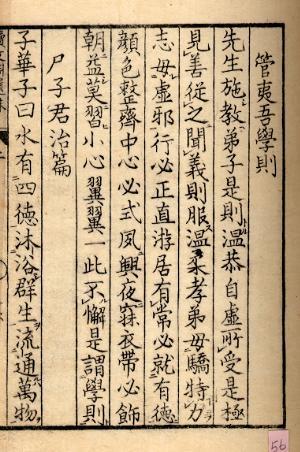 管夷吾學則
先生施教弟子是則溫恭自虛所受是極
見善從之聞義則服溫柔孝弟毋驕恃力
志毋虛邪行必正直游居有常必就有德
顏色整齊中心必式夙興夜寐衣帶必飾
朝益莫習小心翼翼一此不懈是謂學則
尸子君治篇
子華子曰水有四德沐浴群生流通萬物
56